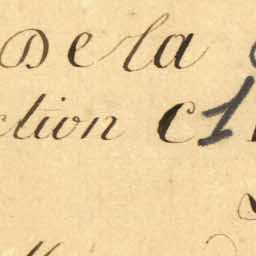 De la
ction C1